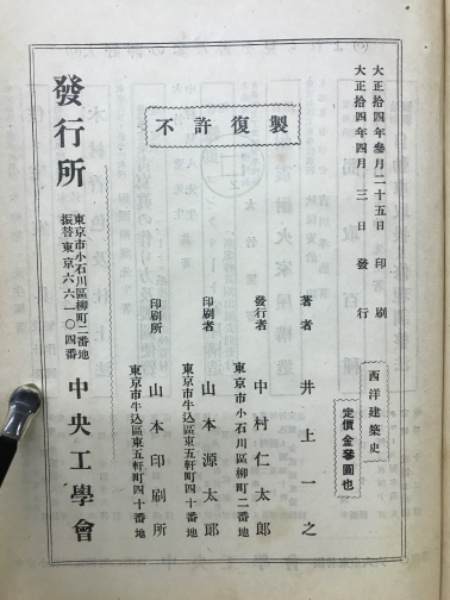 大正拾四年參月二十五日印刷
大正拾四年四月三日發行
不許復製
西洋建築史
定價金參圓也
著者 井上一之
東京市小石川區柳町二番地
發行者 中村仁太郎
東京市牛込區東五軒町四十番地
印刷者 山本源太郎
東京市牛込區東五軒町四十番地
印刷所 山本印刷所
發行所
東京市小石川區柳町二番地
振替東京六六一〇四番
中央工學會